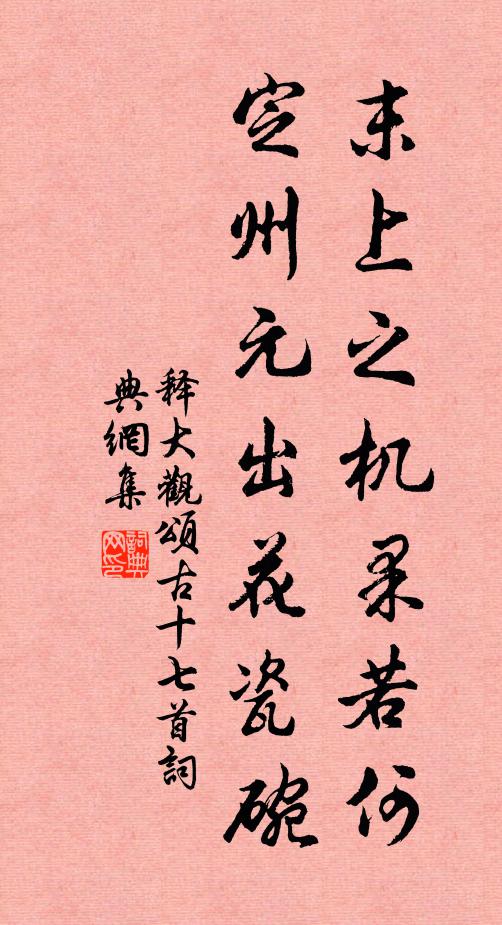 末上之机果若何
定州元出花瓷碗
释大觀頌古十七首詞
典網集
詞典
网印